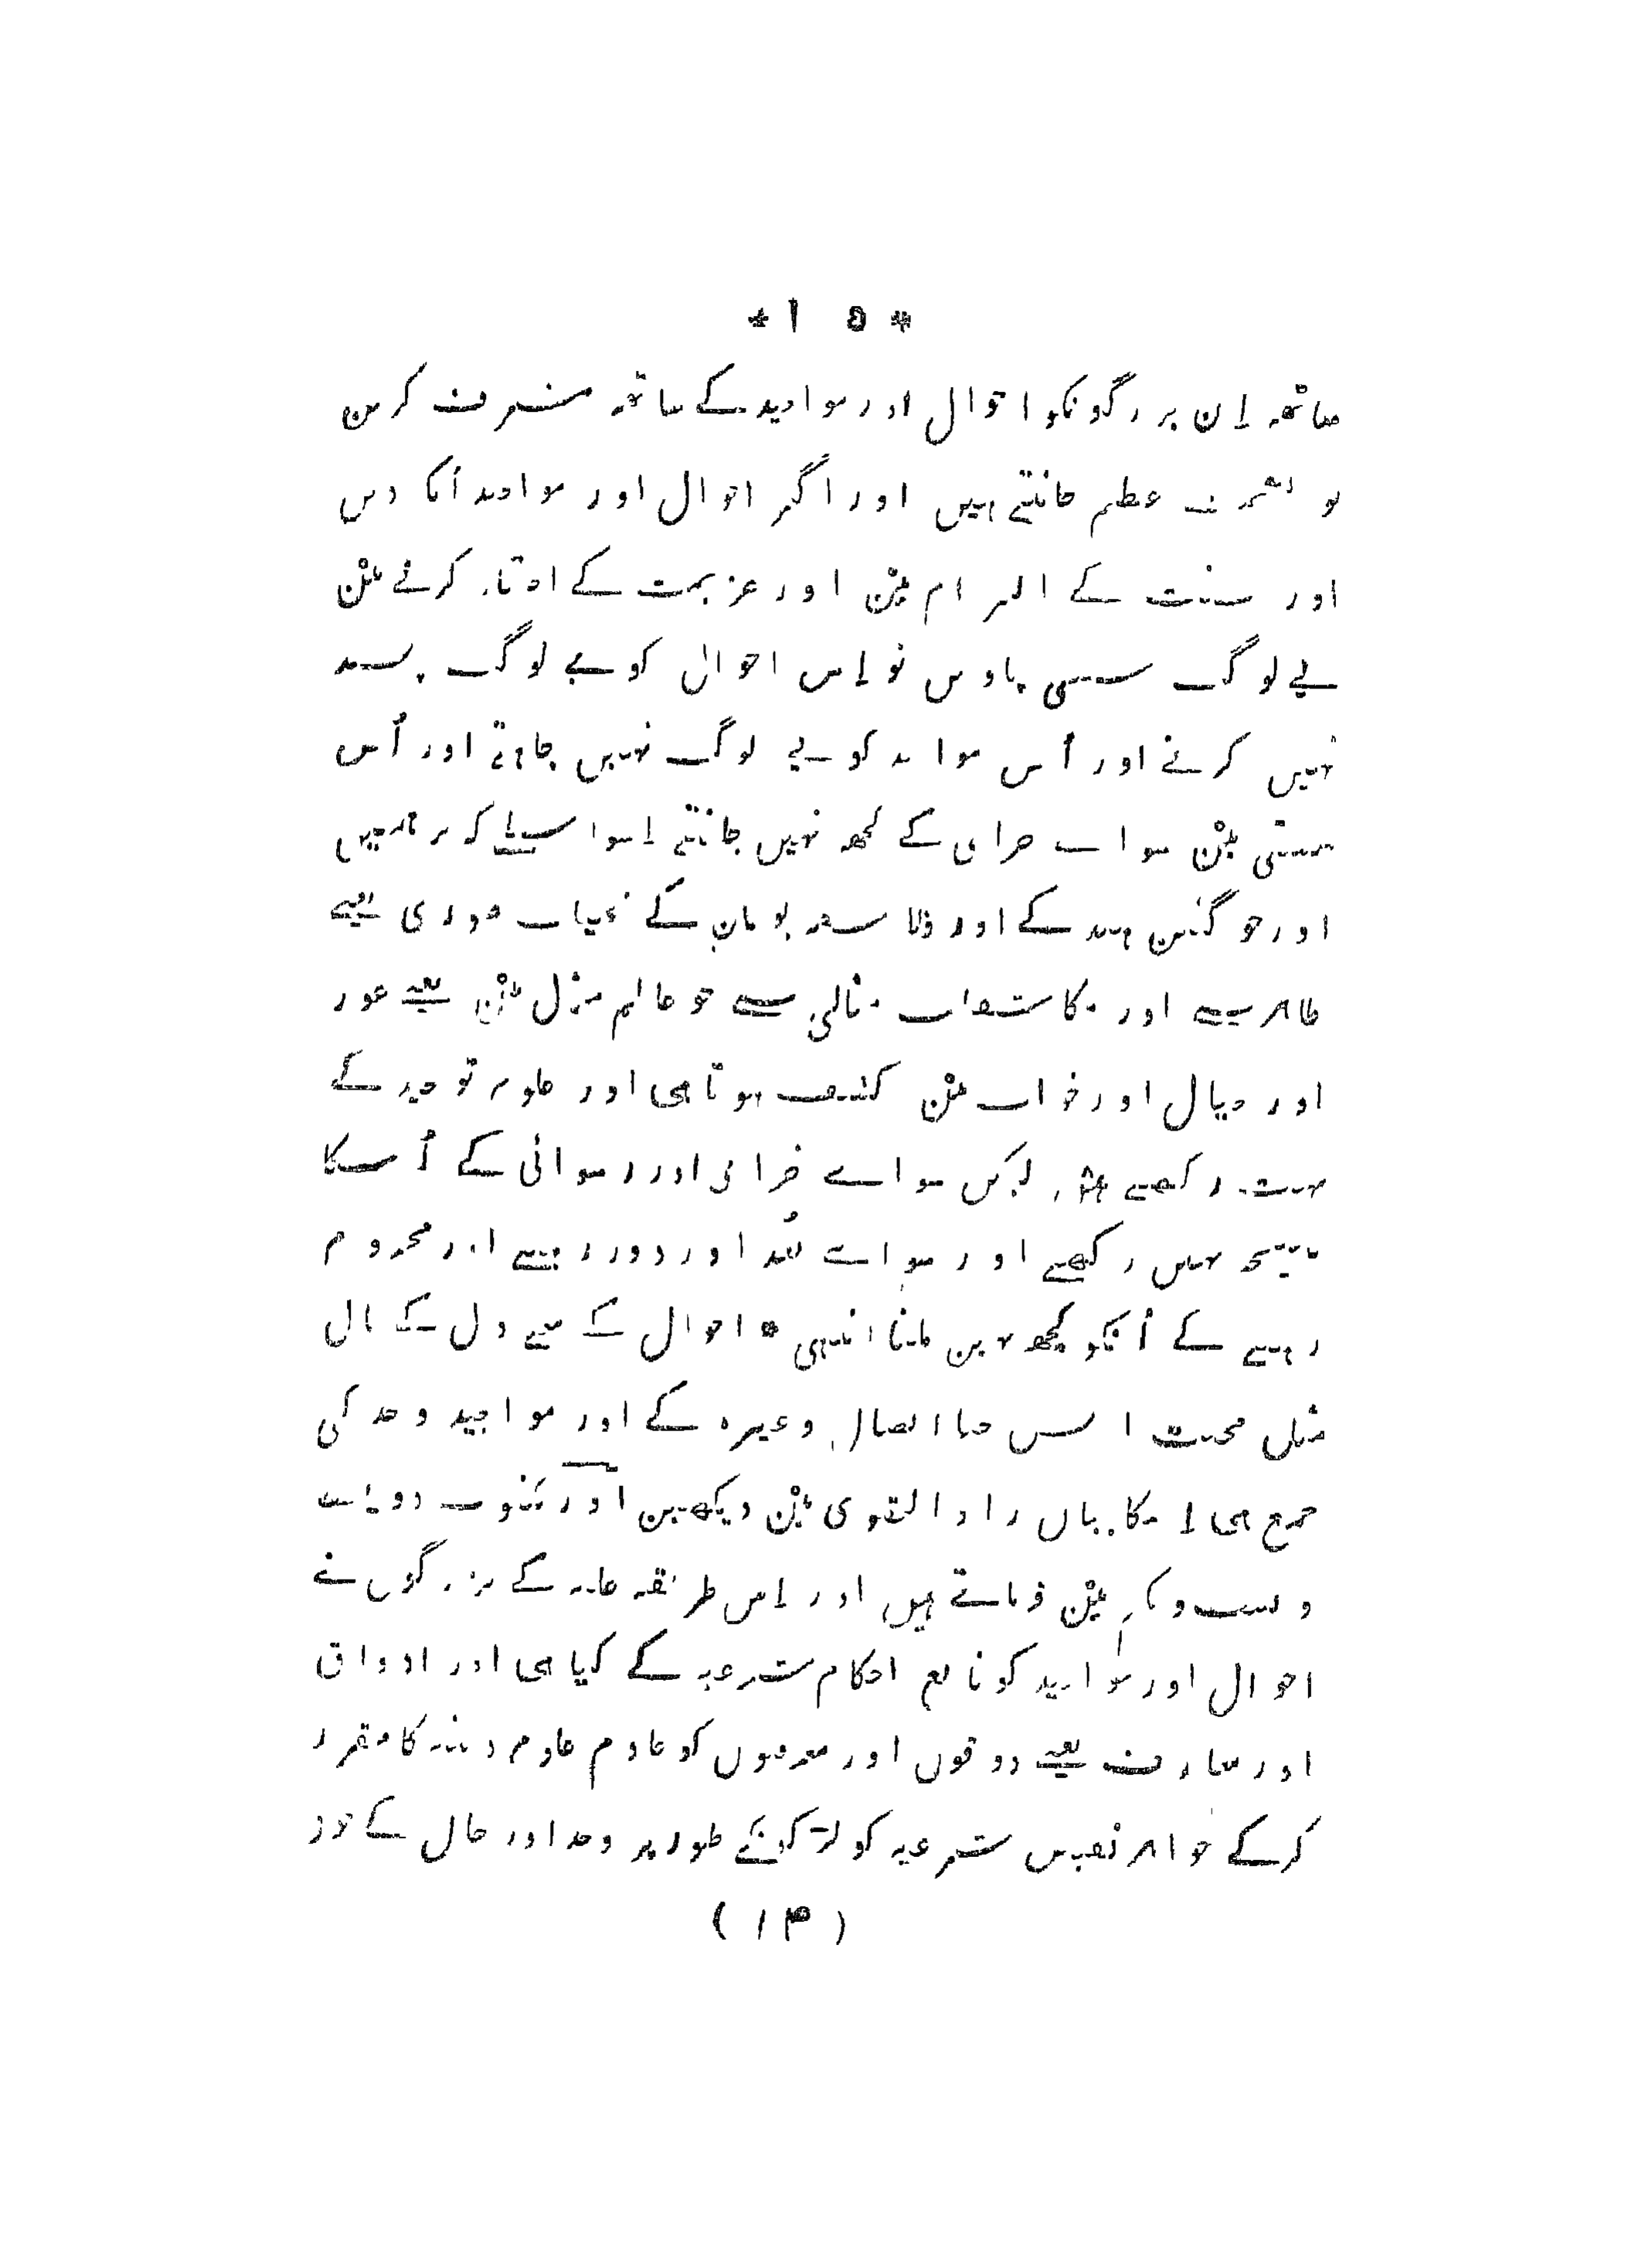 * ۱۵ *
ساتھہ اِن بزرگونکو احوال اور مواجید کے ساتھہ مشرف کرین
تو تشریف عظیم جانتے ہیں اور اگر احوال اور مواجید اُنکا دین
اور سنت کے التزام مین اور عزیمت کے اختیار کرنے مین
یے لوگ سستی پاوین تو اِس احوال کو یے لوگ پسند
نہیں کرتے اور اُس مواجید کو یے لوگ نہیں چاہتے اور اُس
سستی مین سواے خرابی کے کچھہ نہیں جانتے اِسواسطے کہ برہمنیں
اور جوگئیں ہند کے اور فلاسفہ یونان کے تجلیات صوری یعنے
ظاہر سے اور مکاشفات مثالی سے جو عالم مثال مین یعنے غور
اور خیال اور خواب مین کشف ہوتا ہی اور علوم توحید کے
بہت رکھتے ہین لیکن سواے خرابی اور رسوائی کے اُسکا
نتیجہ نہیں رکھتے اور سواے بُعد اور دور رہنے اور محروم
رہنے کے اُنکو کچھہ نہین ملتا انتہی * احوال کے معنے دل کے حال
مثل محبت اُنس حیا اتصال وغیرہ کے اور مواجید وجد کی
جمع ہی اِسکا بیان زاد التقوی مین دیکھین اور مکتوب دویست
و بست و یکم مین فرماتے ہیں اور اِس طریقہ علیہ کے بزرگوں نے
احوال اور مواجید کو تابع احکام شرعیہ کے کیا ہی اور اذواق
اور معارف یعنے ذوقوں اور معرفتوں کو خادم علوم دینیہ کا مقرر
کرکے جواہر نفیس شرعیہ کو لڑکونکے طور پر وجد اور حال کے جوز
( ۱۴ )